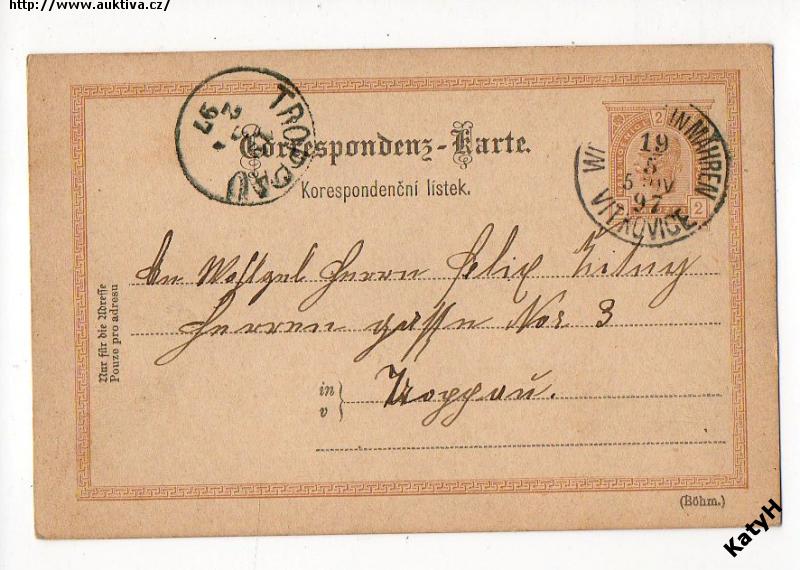 http://www.auktiva.cz/
TROPPAU
97
Correspondenz-Karte.
Korespondenční lístek.
2
2
IN MÄHREN
19
5
97
VITKOVICE
An Wohlgeb Herrn Felix
Herren gasse Nor 3
in
v
Troppau.
Nur für die Adresse
Pouze pro adresu
(Böhm.)
KatyH